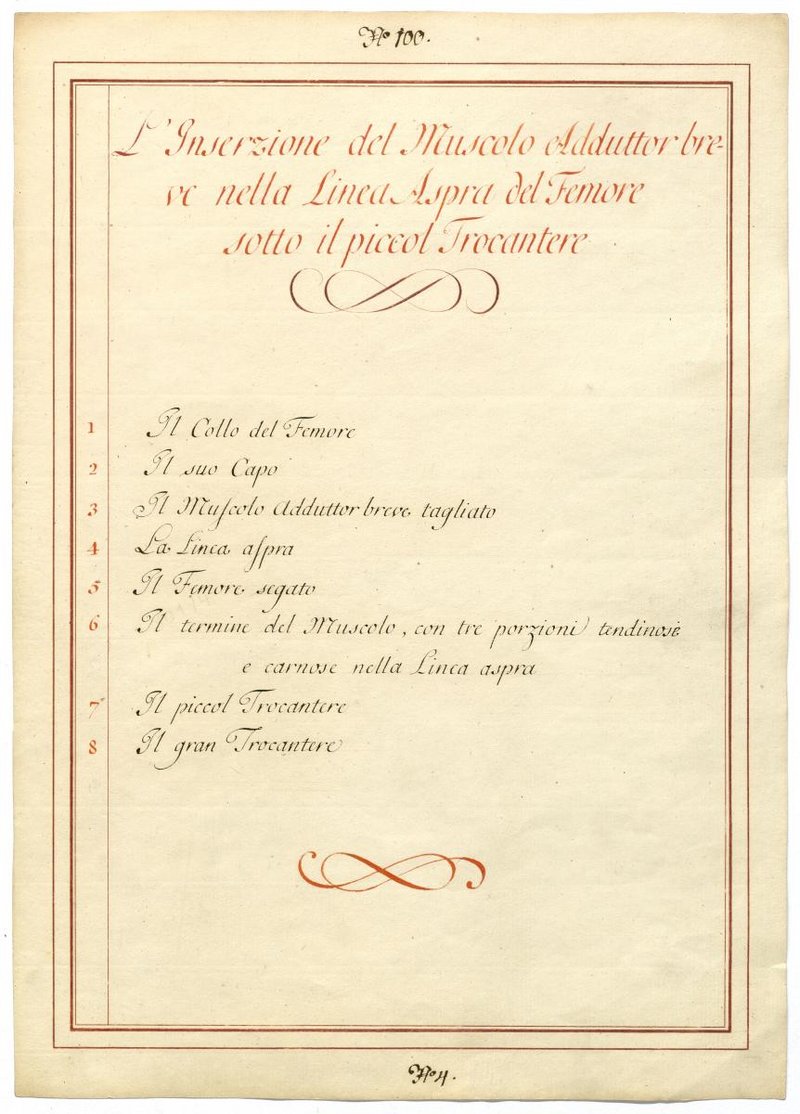 Nº 100.
L'Inserzione del Muscolo Adduttor bre-
ve nella Linea Aspra del Femore
sotto il piccol Trocantere
1 Il Collo del Femore
2 Il suo Capo
3 Il Muſcolo Adduttor breve tagliato
4 La Linea aſpra
5 Il Femore segato
6 Il termine del Muscolo, con tre porzioni tendinose
e carnose nella Linea aspra
7 Il piccol Trocantere
8 Il gran Trocantere
Nº 4.